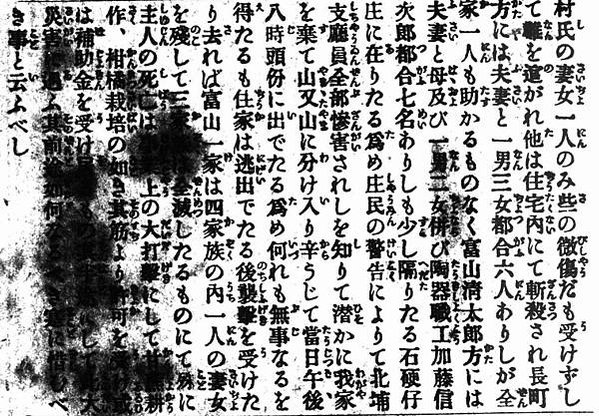 村氏の妻女一人のみ些の微傷だも受けずし
て難を遁がれ他は住宅内にて斬殺され長町
方には夫妻と一男三女都合六人ありしが全
家一人も助かるものなく富山清太郎方には
夫妻と母及び一男二女併び陶器職工加藤信
次郎都合七名ありしも少し隔りたる石硬仔
庄に在りたる為め庄民の警告によりて北埔
支廳員全部慘害されしを知りて潜かに我家
を棄て山又山に分け入り辛うじて當日午後
八時頭份に出でたる為め何れも無事なるを
得たるも住家は逃出でたる後襲撃を受けた
り去れば富山一家は四家族の内一人の妻女
を殘して三家 全滅したるものにて殊に
主人の死亡は 上の大打撃にして 耕
作、柑橘栽培の如き其筋より許可を受け或
は補助金を受け して此大
災害に遇ふ其前途如何 べき實に べ
き事と云ふべし